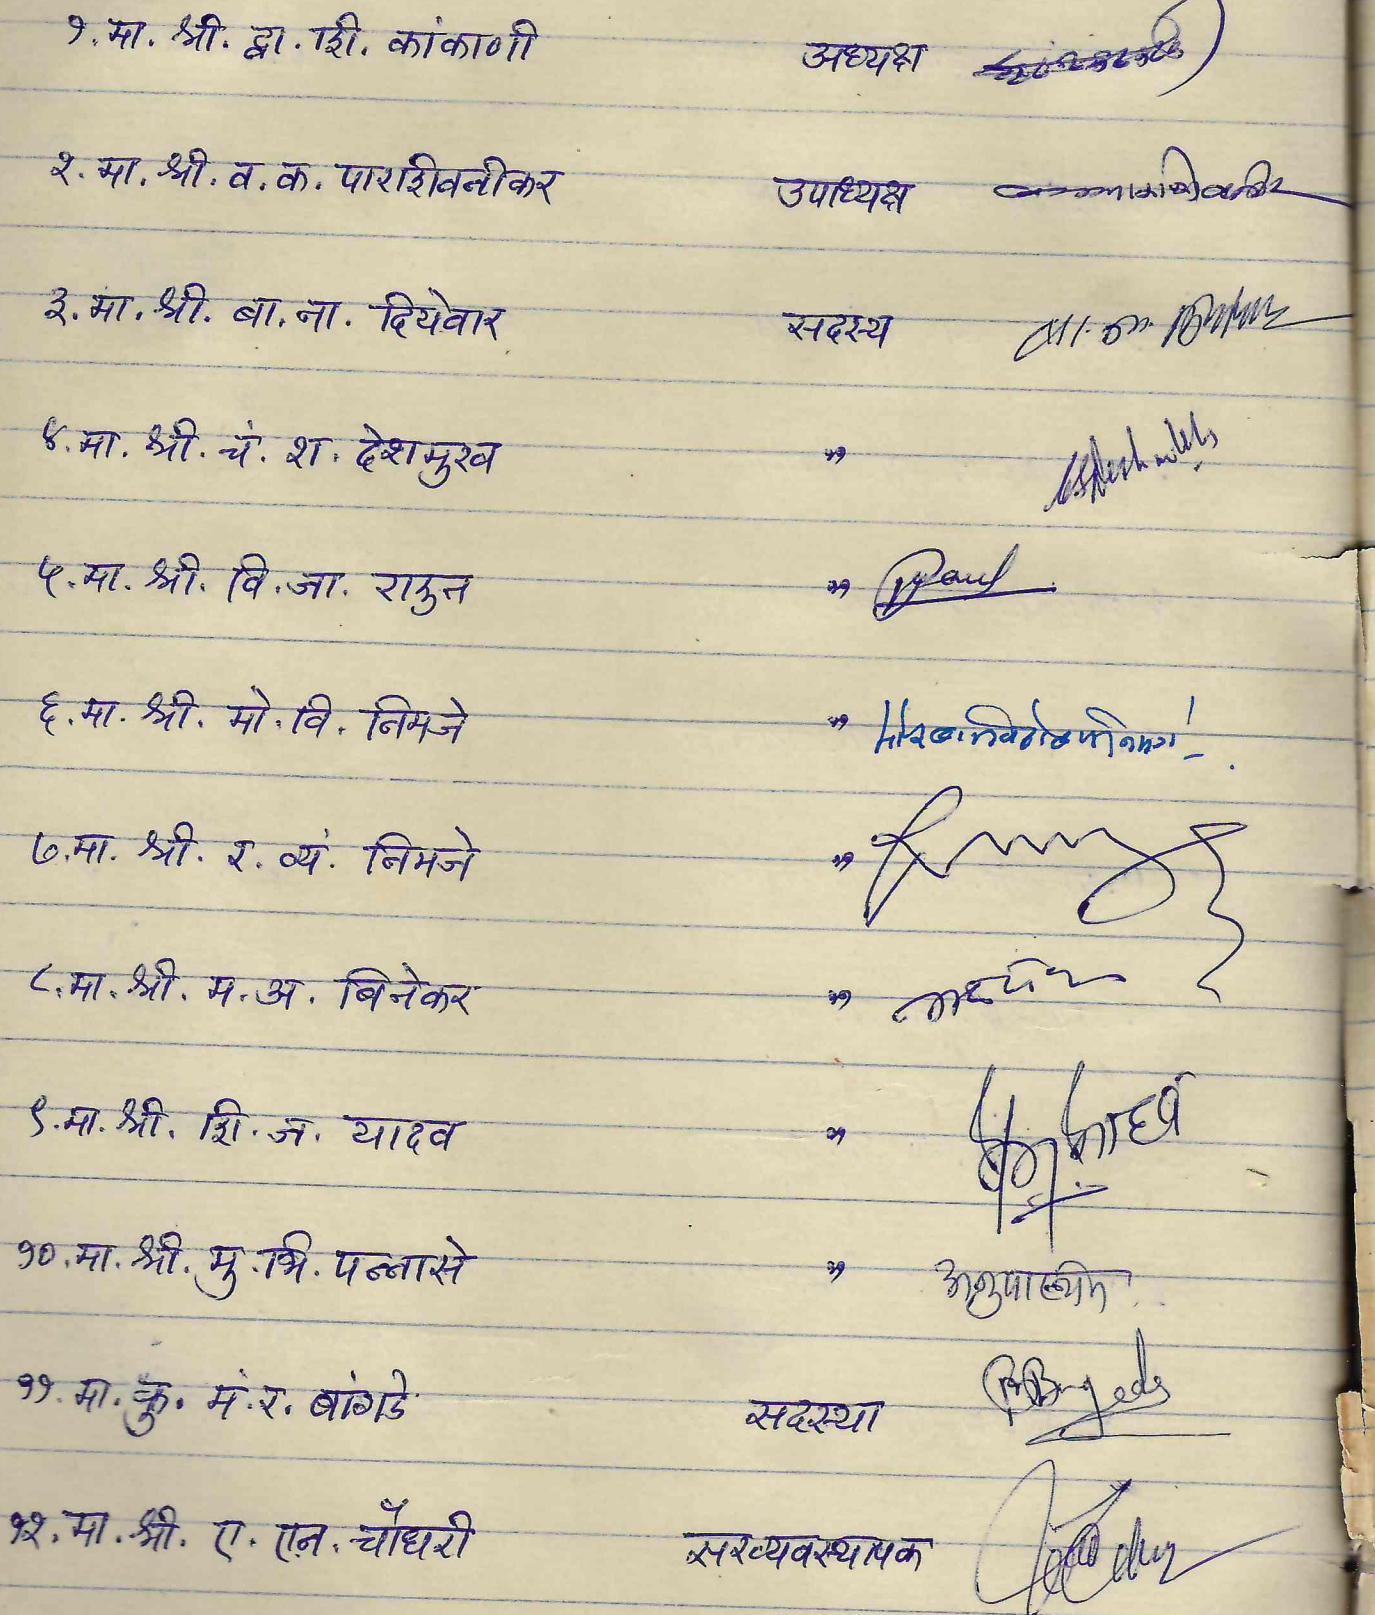 १. मा. श्री. द्वा. शि. कांकाणी अध्यक्ष
२. मा. श्री. व. क. पाराशिवनीकर उपाध्यक्ष
३. मा. श्री. बा. ना. दियेवार सदस्य
४. मा. श्री. चं. श. देशमुख "
५. मा. श्री. वि. जा. राऊत "
६. मा. श्री. मो. वि. निमजे "
७. मा. श्री. र. व्यं. निमजे "
८. मा. श्री. म. अ. बिनेकर "
९. मा. श्री. शि. ज. यादव "
१०. मा. श्री. मु. भि. पन्नासे "
११. मा. कु. मं. र. बांगडे सदस्या
१२. मा. श्री. ए. एन. चौधरी सरव्यवस्थापक